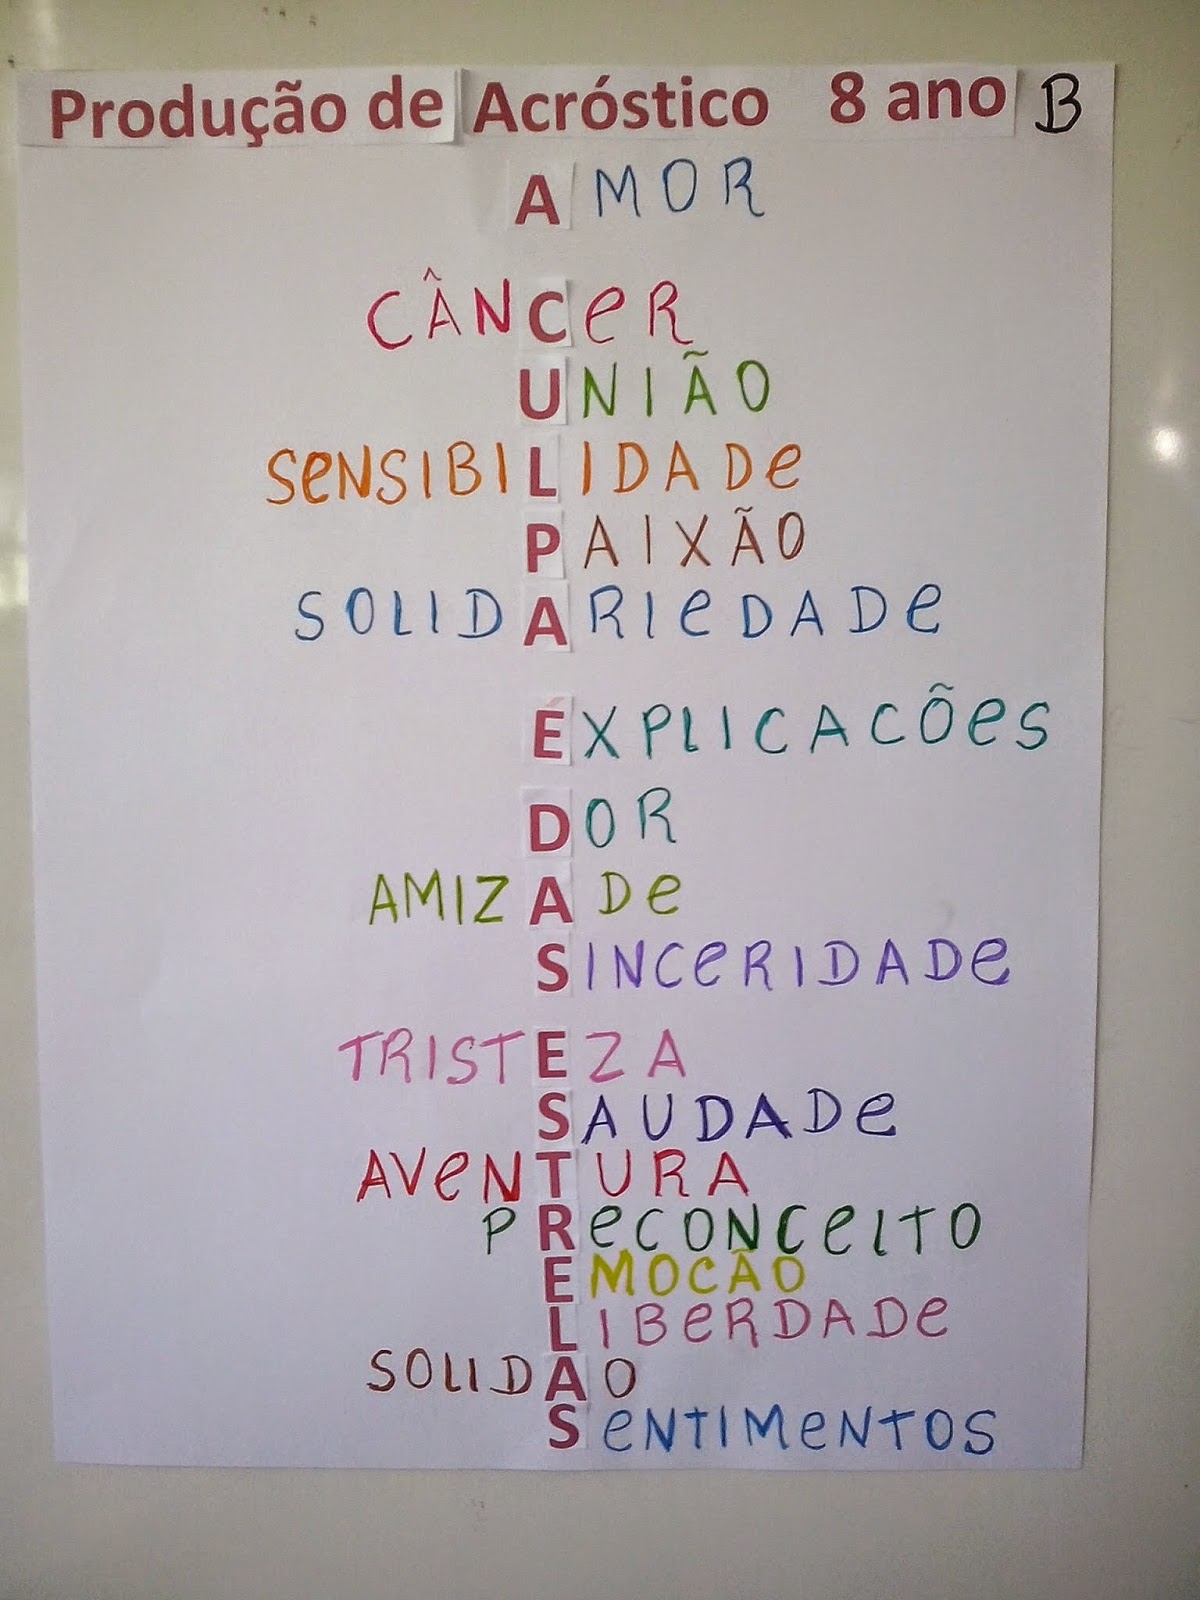 Produção de Acróstico 8 ano B
AMOR
CÂNCeR
UNIÃO
SeNSIBILIDADe
PAIXÃO
SOLIDARIeDADe
ÉXPLICACÕeS
DOR
AMIZADe
SINCeRIDADe
TRISTEZA
SAUDADe
AVeNTURA
PReCONCeITO
EMOCÃO
LIBeRDADe
SOLIDAO
SeNTIMeNTOS